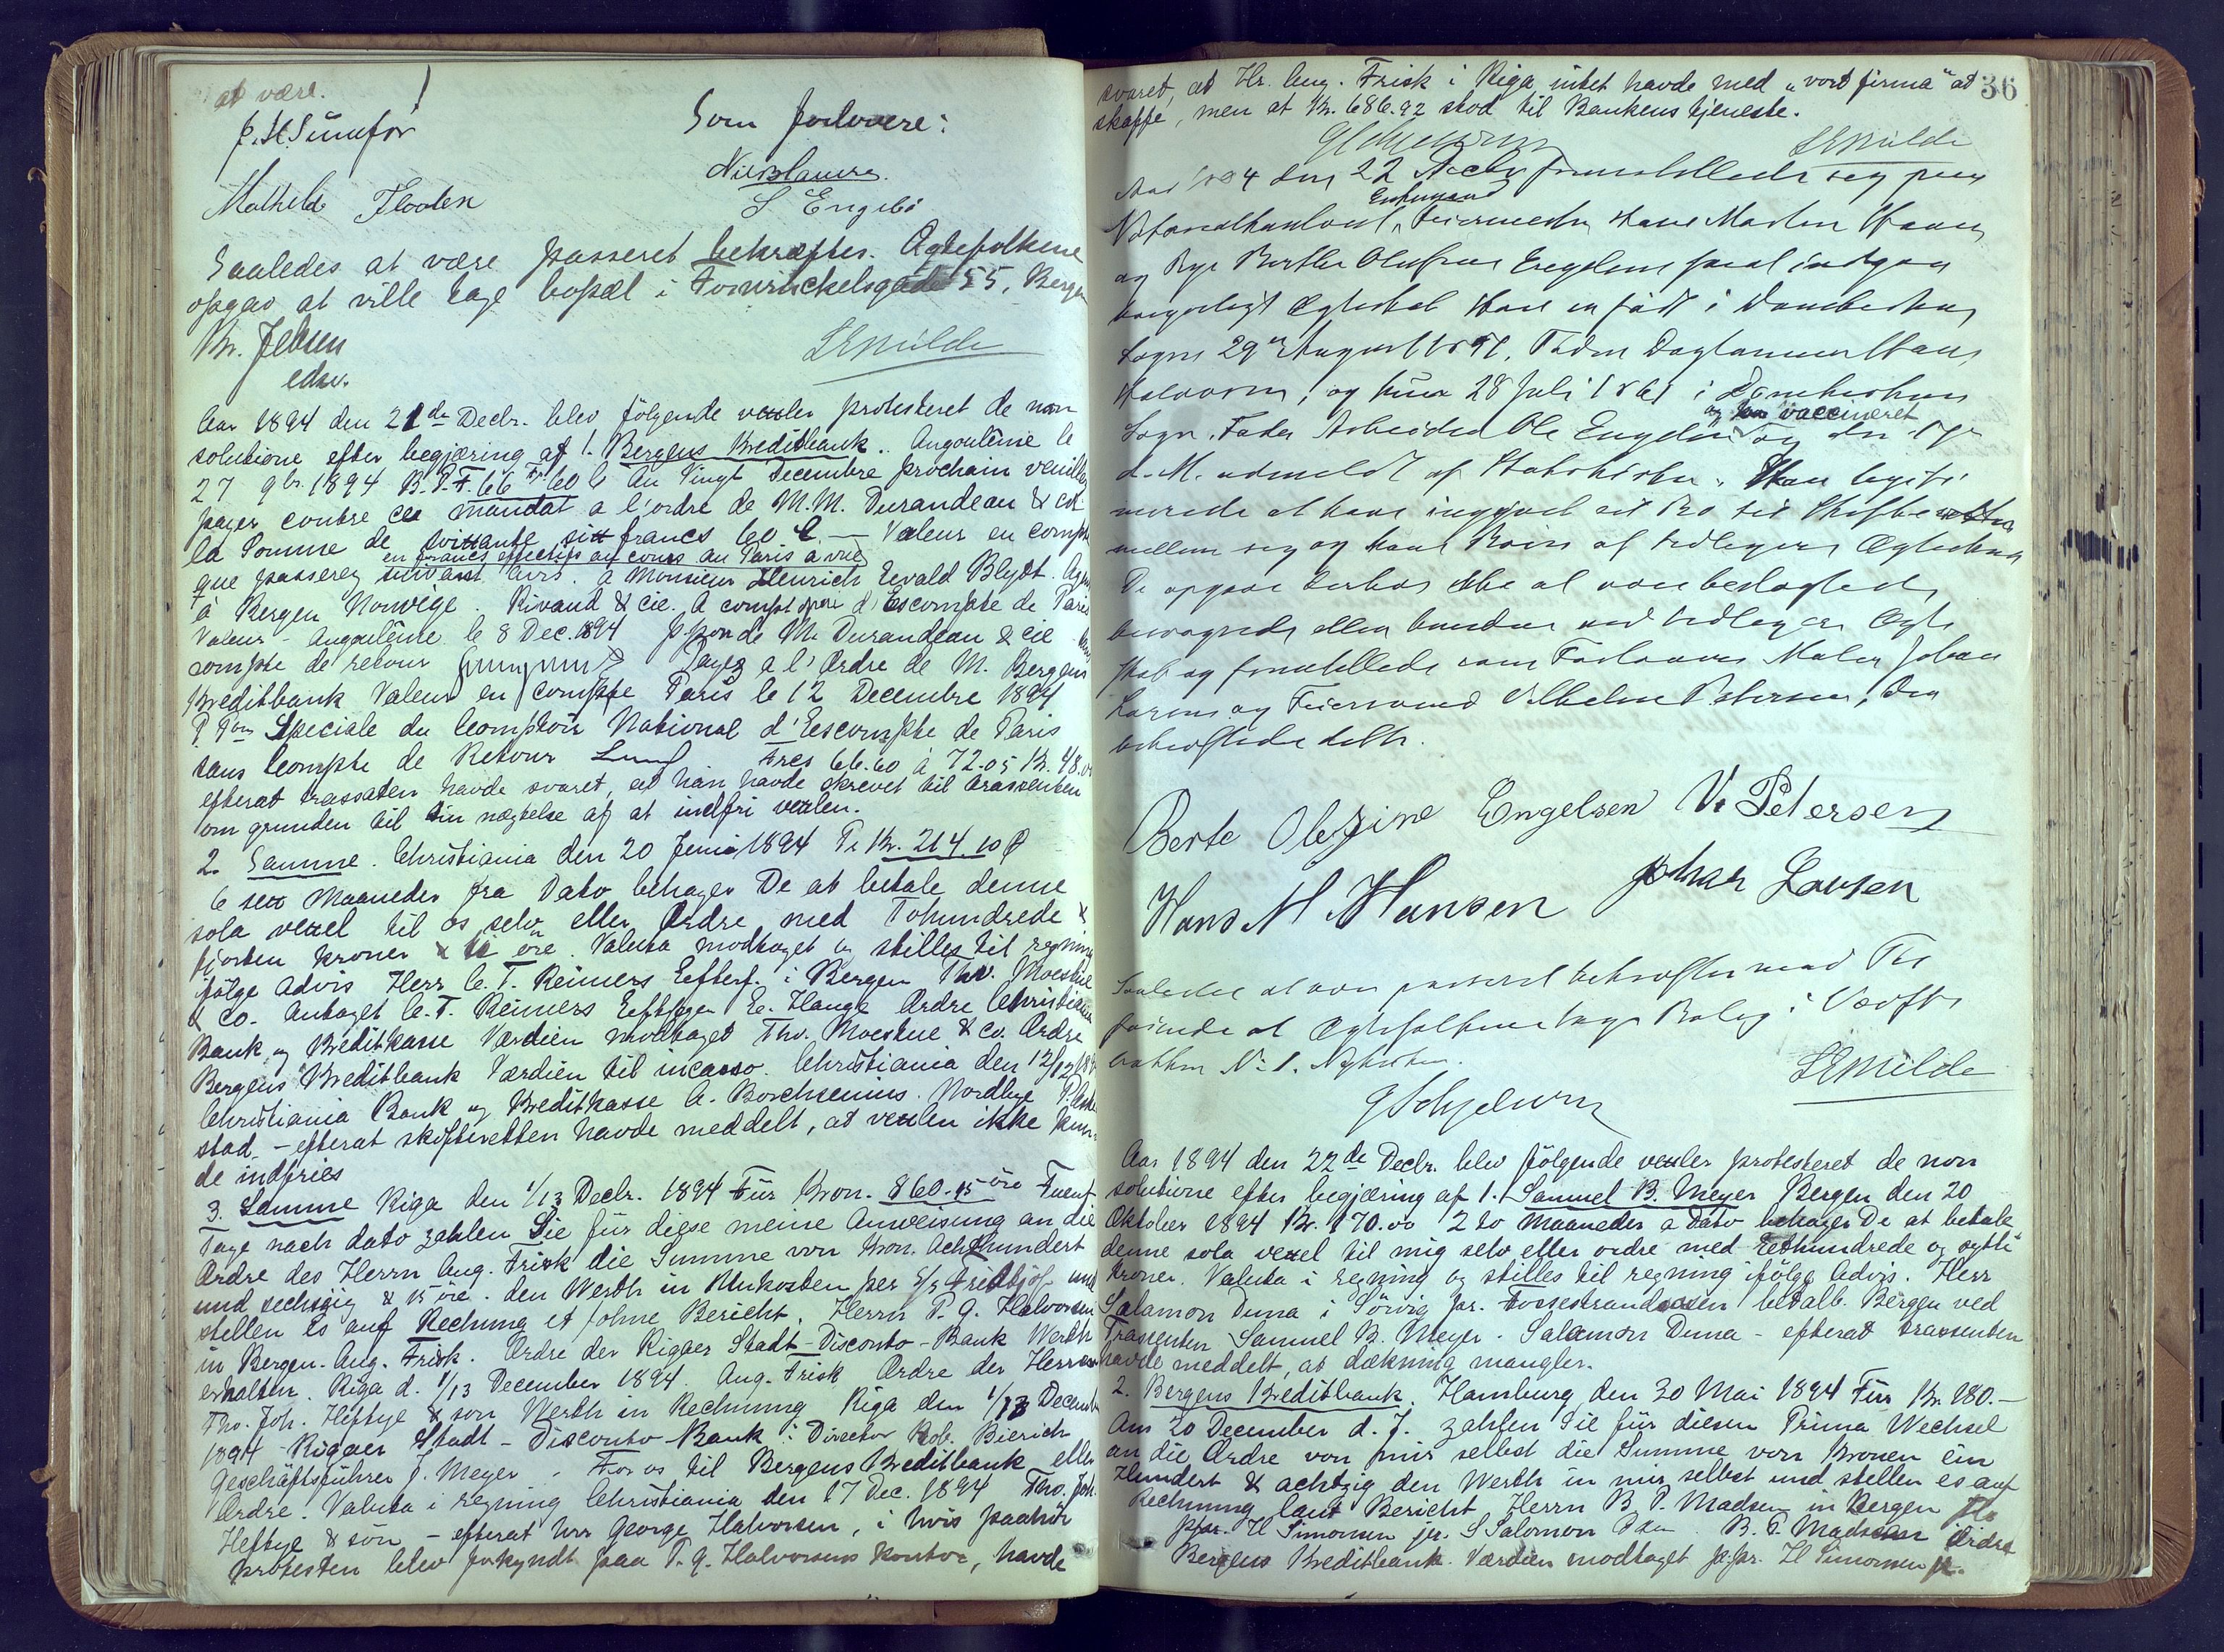 at være.
Som forlovere:
Mathilde Flooten
S Engebö
Saaledes at være passeret bekræftes. Ægtefolkene
opgav at ville tage bopæl i Fosswinckelsgade 55, Bergen
Kr. Jebsen
edsv.
LEMilde
Aar 1894 den 21de Decbr. blev følgende vexler protesteret de non
solutione efter begjæring af 1. Bergens Kreditbank. Angoulême le
27 9br. 1894 B.P.F. 66 Fr 60 c Au Vingt Decembre prochain veuillez
payer contre ce mandat a l'ordre de M.M. Durandeau & cie
la Somme de soixante six francs 60 C. — Valeur en compte
en francs effectifs au cours du Paris a vue
que passerez suivant avis. a Monsieur Henrich Ewald Blydt. Agent
à Bergen Norwege. Rivaud & cie. A comptoir d'Escompte de Paris
Valeur - Angoulême le 8 Dec. 1894 p pon de M. Durandeau & cie
compte de retour Payez a l'Ordre de M. Bergens
Kreditbank Valeur en compte Paris le 12 Decembre 1894
P. Pon Speciale du Comptoir National d'Eescompte de Paris
sans Compte de Retour Frcs 66.60 à 72.05 Kr. 48.
efterat trassaten havde svaret, at han havde skrevet til trassenten
om grunden til sin nægtelse af at indfri vexlen.
2. Samme. Christiania den 20 Juni 1894 Pr Kr. 214.10 Ø
6 sex Maaneder fra Dato behager De at betale denne
sola vexel til os selv eller Ordre med Tohundrede &
fjorten kroner & ti öre. Valuta modtaget og stilles til regning
ifölge Advis Herr C. T. Reimers Eefterf. i Bergen Thv. Moestue
& Co. Antaget C. T. Reimers Eeftfgr. E. Hauge Ordre Christiania
Bank og Kreditkasse Værdien modtaget Thv. Moestue & Co. Ordre
Bergens Kreditbank Værdien til incasso. Christiania den 12/12 189
Christiania Bank og Kreditkasse C. Borchsenius. Nordbye
stad - efterat skifteretten havde meddelt, at vexlen ikke kun-
de indfries
3. Samme Riga den 1/13 Decbr. 1894 Für Kron. 860.15 öre Fuenf
Tage nach dato zahlen Sie für diese meine Anweisung an die
Ordre des Herrn Aug. Frisk die Summe von Kron. Achthundert
und sechszig & 15 öre. den Werth in Unkosten per S/S Fridtjöf und
stellen es auf Rechnung et/ohne Bericht. Herrn P. G. Halvorsen
in Bergen. Aug. Frisk. Ordre der Rigaer Stadt-Disconto-Bank Werth
erhalten. Riga d. 1/13 December 1894. Aug. Frisk Ordre der Herren
Tho. Joh. Heftye & son Werth in Rechnung Riga den 1/13 December
1894 Rigaer Stadt-Disconto-Bank: Director Rob. Bierich
Geschäftsführer J. Meyer. For os til Bergens Kreditbank eller
Ordre. Valuta i regning Christiania den 17 Dec. 1894 Tho. Joh.
Heftye & son - efterat herr George Halvorsen, i hvis paahör
protesten blev forkyndt paa P. G. Halvorsens kontor, havde
36
svaret, at Hr. Aug. Frisk i Riga intet havde med „vort firma" at
skaffe, men at Kr. 686.92 stod til Bankens tjeneste.
LEMilde
Aar 1894 den 22 Decbr fremstillede sig paa
Enkemand
Notarialkontoret, Feiermester Hans Martin Hansen
og Pige Berthe Olufine Engelsen for at indgaa
borgerligt Ægteskab Han er født i Domkirkens
Sogn 29de August 18, Fader Daglønner Hans
Halvorsen, og hun 28 Juli 1861 i Domkirkens
og vaccineret
Sogn. Fader Arbeider Ole Engelsen og den
d. M. udmeldt af Statskirken. Han legiti-
merede at have indgivet sit til Skifteretten
mellem sig og hans Børn af tidligere Ægteskab
De opgav derhos ikke at være beslægtede,
besvogrede eller bundne ved tidligere Ægte
skab og fremstillede som Forlovere Maler Johan
Larsen og Feiersvend Vilhelm Petersen, der
bekræftede dette.
Berte Olefine Engelsen V. Petersen
Hans M. Hansen Johan Larsen
Saaledes at være passeret bekræftes med Til
føiende at Ægtefolkene tager Bolig i Værfts
bakken No 1. Nykirken.
LEMilde
Aar 1894 den 22de Decbr. blev følgende vexler protesteret de non
solutione efter begjæring af 1. Samuel B. Meyer Bergen den 20
Oktober 1894 Kr. 170.00 2 to maaneder a Dato behager De at betale
denne sola vexel til mig selv eller ordre med Eethundrede og sytti
kroner. Valuta i regning og stilles til regning ifölge Advis. Herr
Salamon Duna i Sörvig pr. Fossestrandosen betalb. Bergen ved
Trassenten Samuel B. Meyer. Salamon Duna - efterat trassenten
havde meddelt, at dækning mangler.
2. Bergens Kreditbank. Hamburg den 20 Mai 1894 Für Kr. 180.—
Am 20 December d. J. zahlen Sie für diesen Prima Wechsel
an die Ordre von mir selbst die Summe von Kronen ein
Hundert & achtzig den Werth in mir selbst und stellen es auf
Rechnung laut Bericht. Herrn B. P. Madsen in Bergen
ppr. H Simonsen jr. S Salomon B. P. Madsen Ordre
Bergens Kreditbank. Værdien modtaget p. pr. H Simonsen jr.